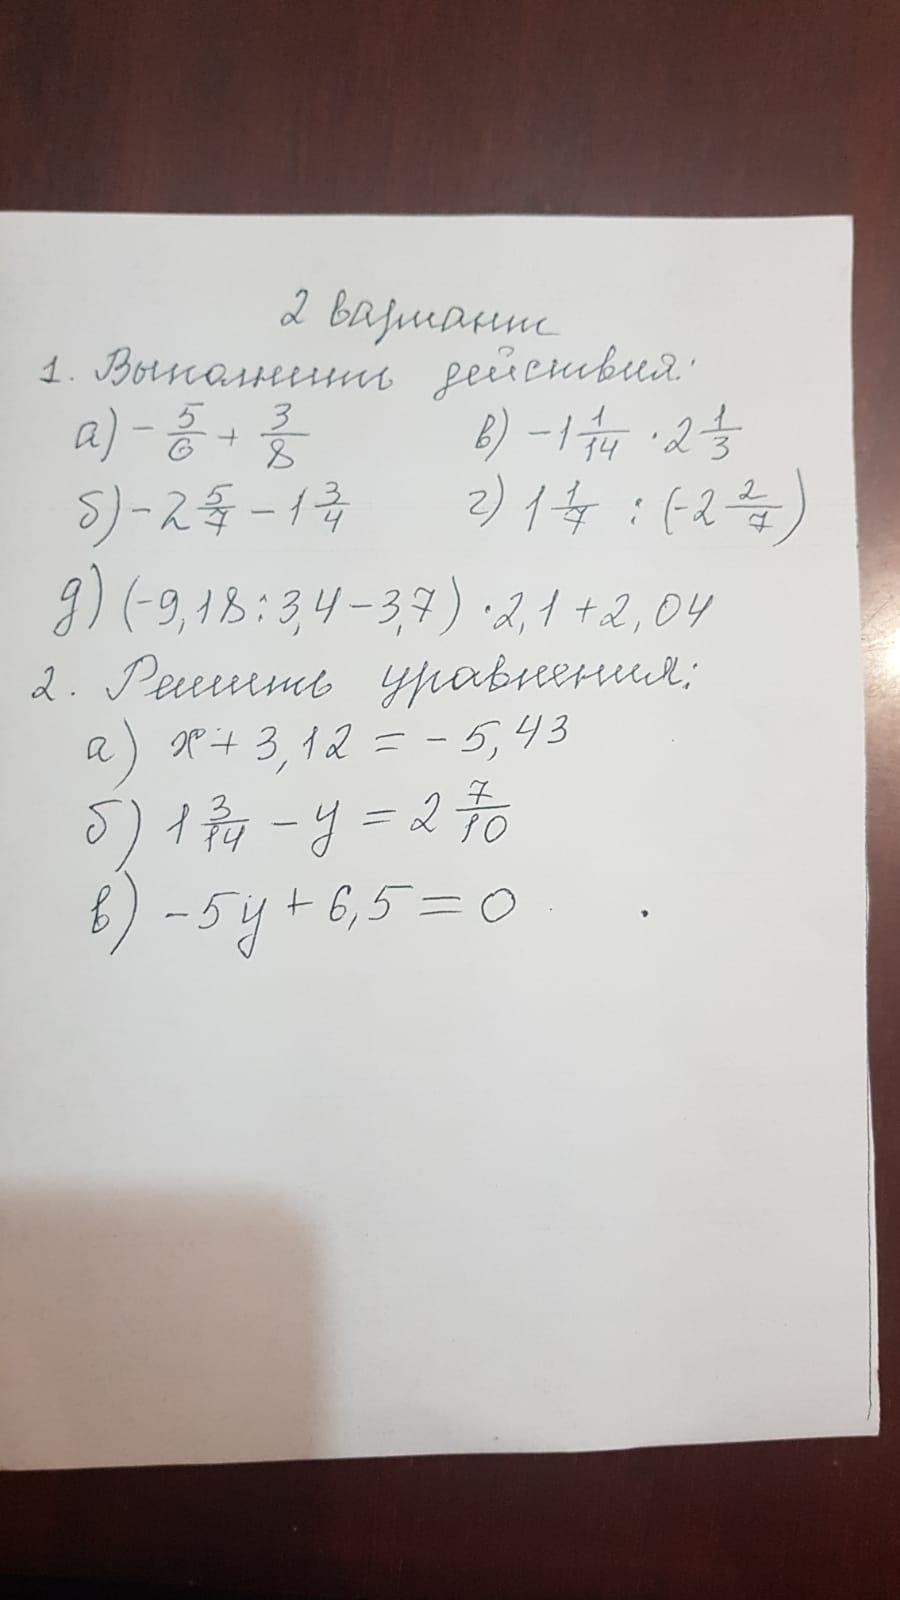 2 вариант
1. Выполнить действия:
а) - 5/6 + 3/8 в) -1 1/14 · 2 1/3
б) -2 5/7 - 1 3/4 г) 1 1/7 : (-2 2/7)
д) (-9,18 : 3,4 - 3,7) · 2,1 + 2,04
2. Решить уравнения:
а) x + 3,12 = - 5,43
б) 1 3/14 - y = 2 7/10
в) -5y + 6,5 = 0